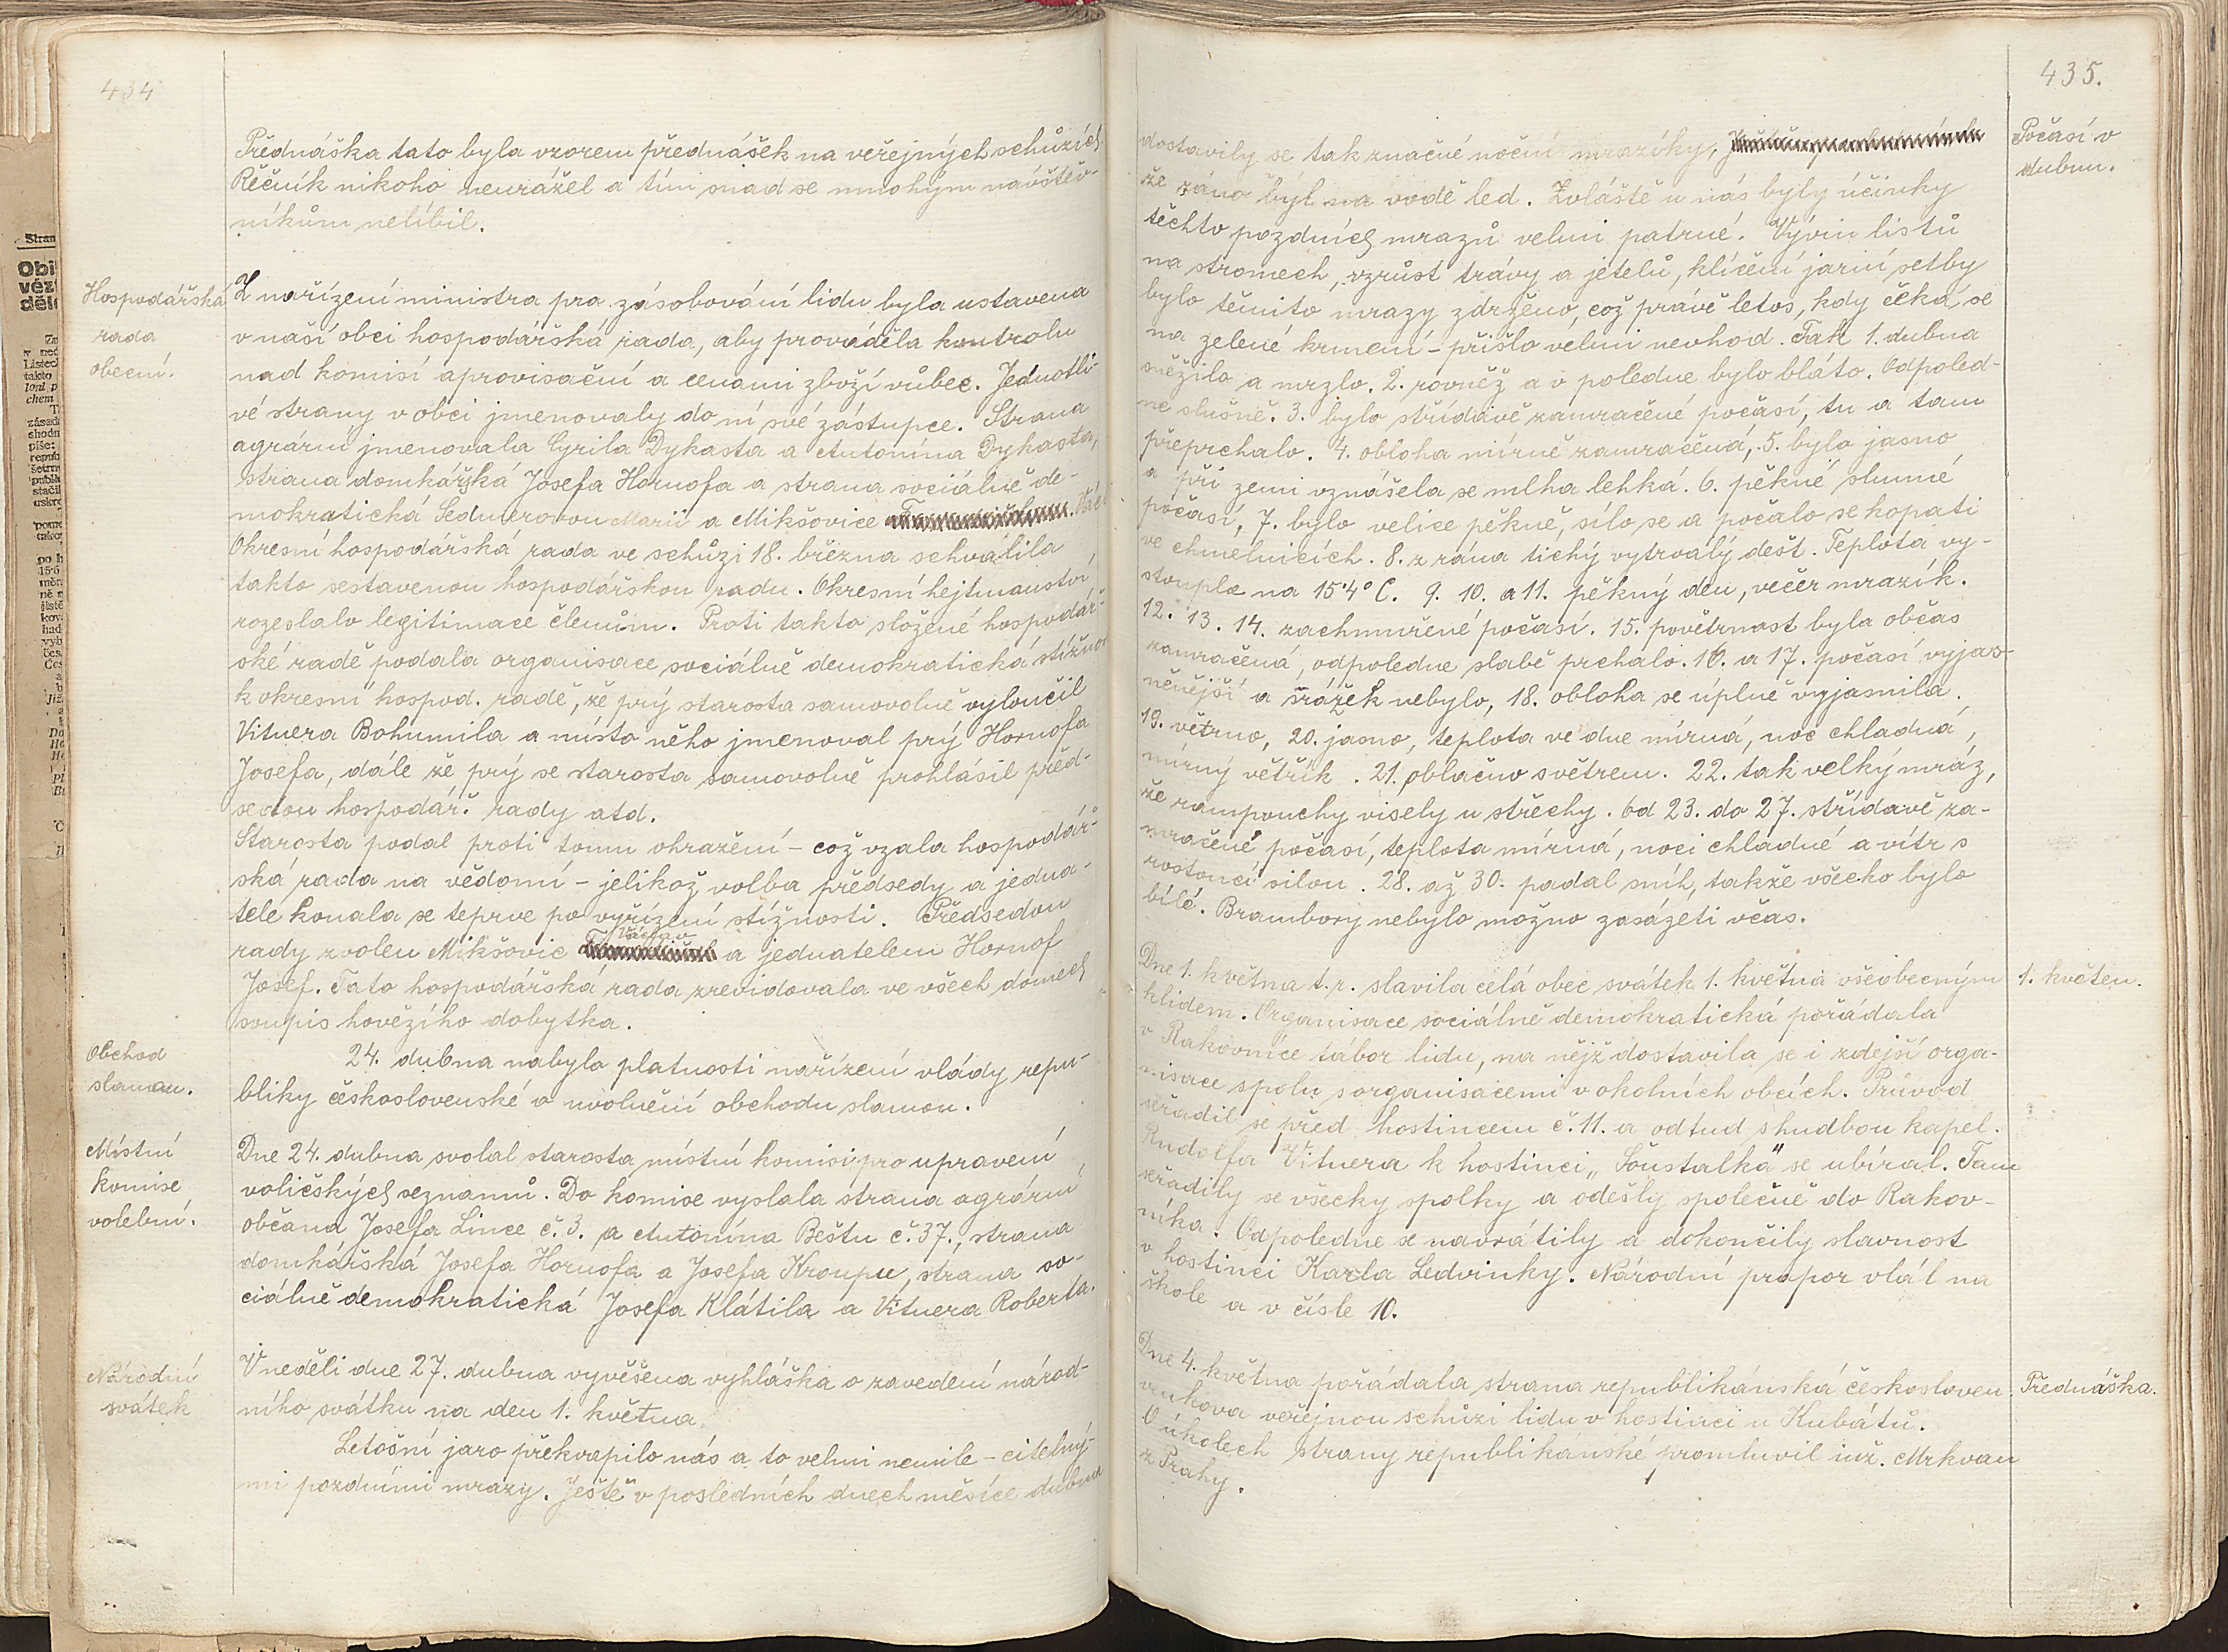 434
Přednáška tato byla vzorem přednášek na veřejných schůzích
Řečník nikoho neurážel a tím snad se mnohým návštěv-
níkům nelíbil.
Hospodářská
rada
obecní.
Z nařízení ministra pro zásobování lidu byla ustavena
v naší obci hospodářská rada, aby prováděla kontrolu
nad komisí aprovisační a cenami zboží vůbec. Jednotli-
vé strany v obci jmenovaly do ní své zástupce. Strana
agrární jmenovala Cyrila Dykasta a Antonína Dykasta,
strana domkářská Josefa Hornofa a strana sociálně de-
mokratická Sednerovou Marii a Mikšovice Vác
Okresní hospodářská rada ve schůzi 18. března schválila
takto sestavenou hospodářskou radu. Okresní hejtmanství
rozeslalo legitimace členům. Proti takto složené hospodář-
ské radě podala organisace sociálně demokratická stížnost
k okresní hospod. radě, že prý starosta samovolně vyloučil
Vitnera Bohumila a místo něho jmenoval prý Hornofa
Josefa, dále že prý se starosta samovolně prohlásil před-
sedou hospodář. rady atd.
Starosta podal proti tomu ohražení – což vzala hospodář-
ská rada na vědomí – jelikož volba předsedy a jedna-
tele konala se teprve po vyřízení stížnosti. Předsedou
rady zvolen Mikšovic Václav a jednatelem Hornof
Josef. Tato hospodářská rada zrevidovala ve všech domech
soupis hovězího dobytka.
Obchod
slamou.
24. dubna nabylo platnosti nařízení vlády repu-
bliky československé o uvolnění obchodu slamou.
Místní
komise
volební.
Dne 24. dubna svolal starosta místní komisi pro upravení
voličských seznamů. Do komise vyslala strana agrární
občana Josefa Lince č. 3. a Antonína Beštu č. 37., strana
domkářská Josefa Hornofa a Josefa Kroupu, strana so-
ciálně demokratická Josefa Klátila a Vitnera Roberta.
Národní
svátek
V neděli dne 27. dubna vyvěšena vyhláška o zavedení národ-
ního svátku na den 1. května.
Letošní jaro překvapilo nás a to velmi nemile – citelný-
mi pozdními mrazy. Ještě v posledních dnech měsíce dubna
435.
Počasí v
dubnu.
dostavily se tak značné noční mrazíky,
že ráno byl na vodě led. Zvláště u nás byly účinky
těchto pozdních mrazů velmi patrné. Vývin listů
na stromech, vzrůst trávy a jetelů, klíčení jarní setby
bylo těmito mrazy zdrženo, což právě letos, kdy čeká se
na zelené krmení – přišlo velmi nevhod. Tak 1. dubna
sněžilo a mrzlo. 2. rovněž a v poledne bylo bláto. Odpoled-
ne slušně. 3. bylo střídavě zamračené počasí, tu a tam
přeprchalo. 4. obloha mírně zamračená, 5. bylo jasno
a při zemi vznášela se mlha lehká. 6. pěkné slunné
počasí, 7. bylo velice pěkně, sílo se a počalo se kopati
ve chmelnicích. 8. z rána tichý vytrvalý dešť. Teplota vy-
stoupla na 15·4° C. 9. 10. a 11. pěkný den, večer mrazík.
12. 13. 14. zachmuřené počasí. 15. povětrnost byla občas
zamračená, odpoledne slabě prchalo. 16. a 17. počasí vyjas-
něnější a srážek nebylo, 18. obloha se úplně vyjasnila.
19. větrno, 20. jasno, teplota ve dne mírná, noc chladná,
mírný větřík. 21. oblačno s větrem. 22. tak velký mráz,
že rampouchy visely u střechy. Od 23. do 27. střídavě za-
mračené počasí, teplota mírná, noci chladné a vítr s
rostoucí silou. 28. až 30. padal sníh, takže všecko bylo
bílé. Brambory nebylo možno zasázeti včas.
1. květen.
Dne 1. května t. r. slavila celá obec svátek 1. května všeobecným
klidem. Organisace sociálně demokratická pořádala
v Rakovníce tábor lidu, na nějž dostavila se i zdejší orga-
nisace spolu s organisacemi v okolních obcích. Průvod
seřadil se před hostincem č. 11. a odtud s hudbou kapel.
Rudolfa Vitnera k hostinci „Šoustalka" se ubíral. Tam
seřadily se všecky spolky a odešly společně do Rakov-
níka. Odpoledne se navrátily a dokončily slavnost
v hostinci Karla Ledvinky. Národní prapor vlál na
škole a v čísle 10.
Přednáška.
Dne 4. května pořádala strana republikánská českosloven.
venkova veřejnou schůzi lidu v hostinci u Kubátů.
O úkolech strany republikánské promluvil inž. Mrkvan
z Prahy.